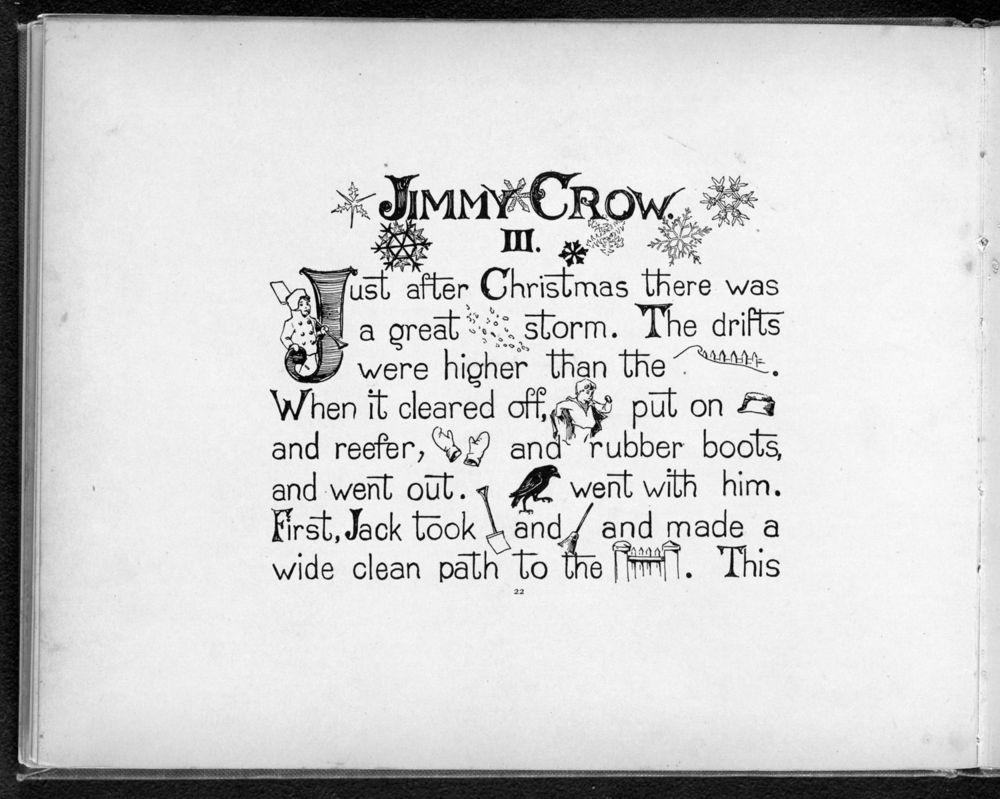 JIMMY CROW.
III.
Just after Christmas there was
a great storm. The drifts
were higher than the .
When it cleared off, put on
and reefer, and rubber boots,
and went out. went with him.
First, Jack took and and made a
wide clean path to the . This
22